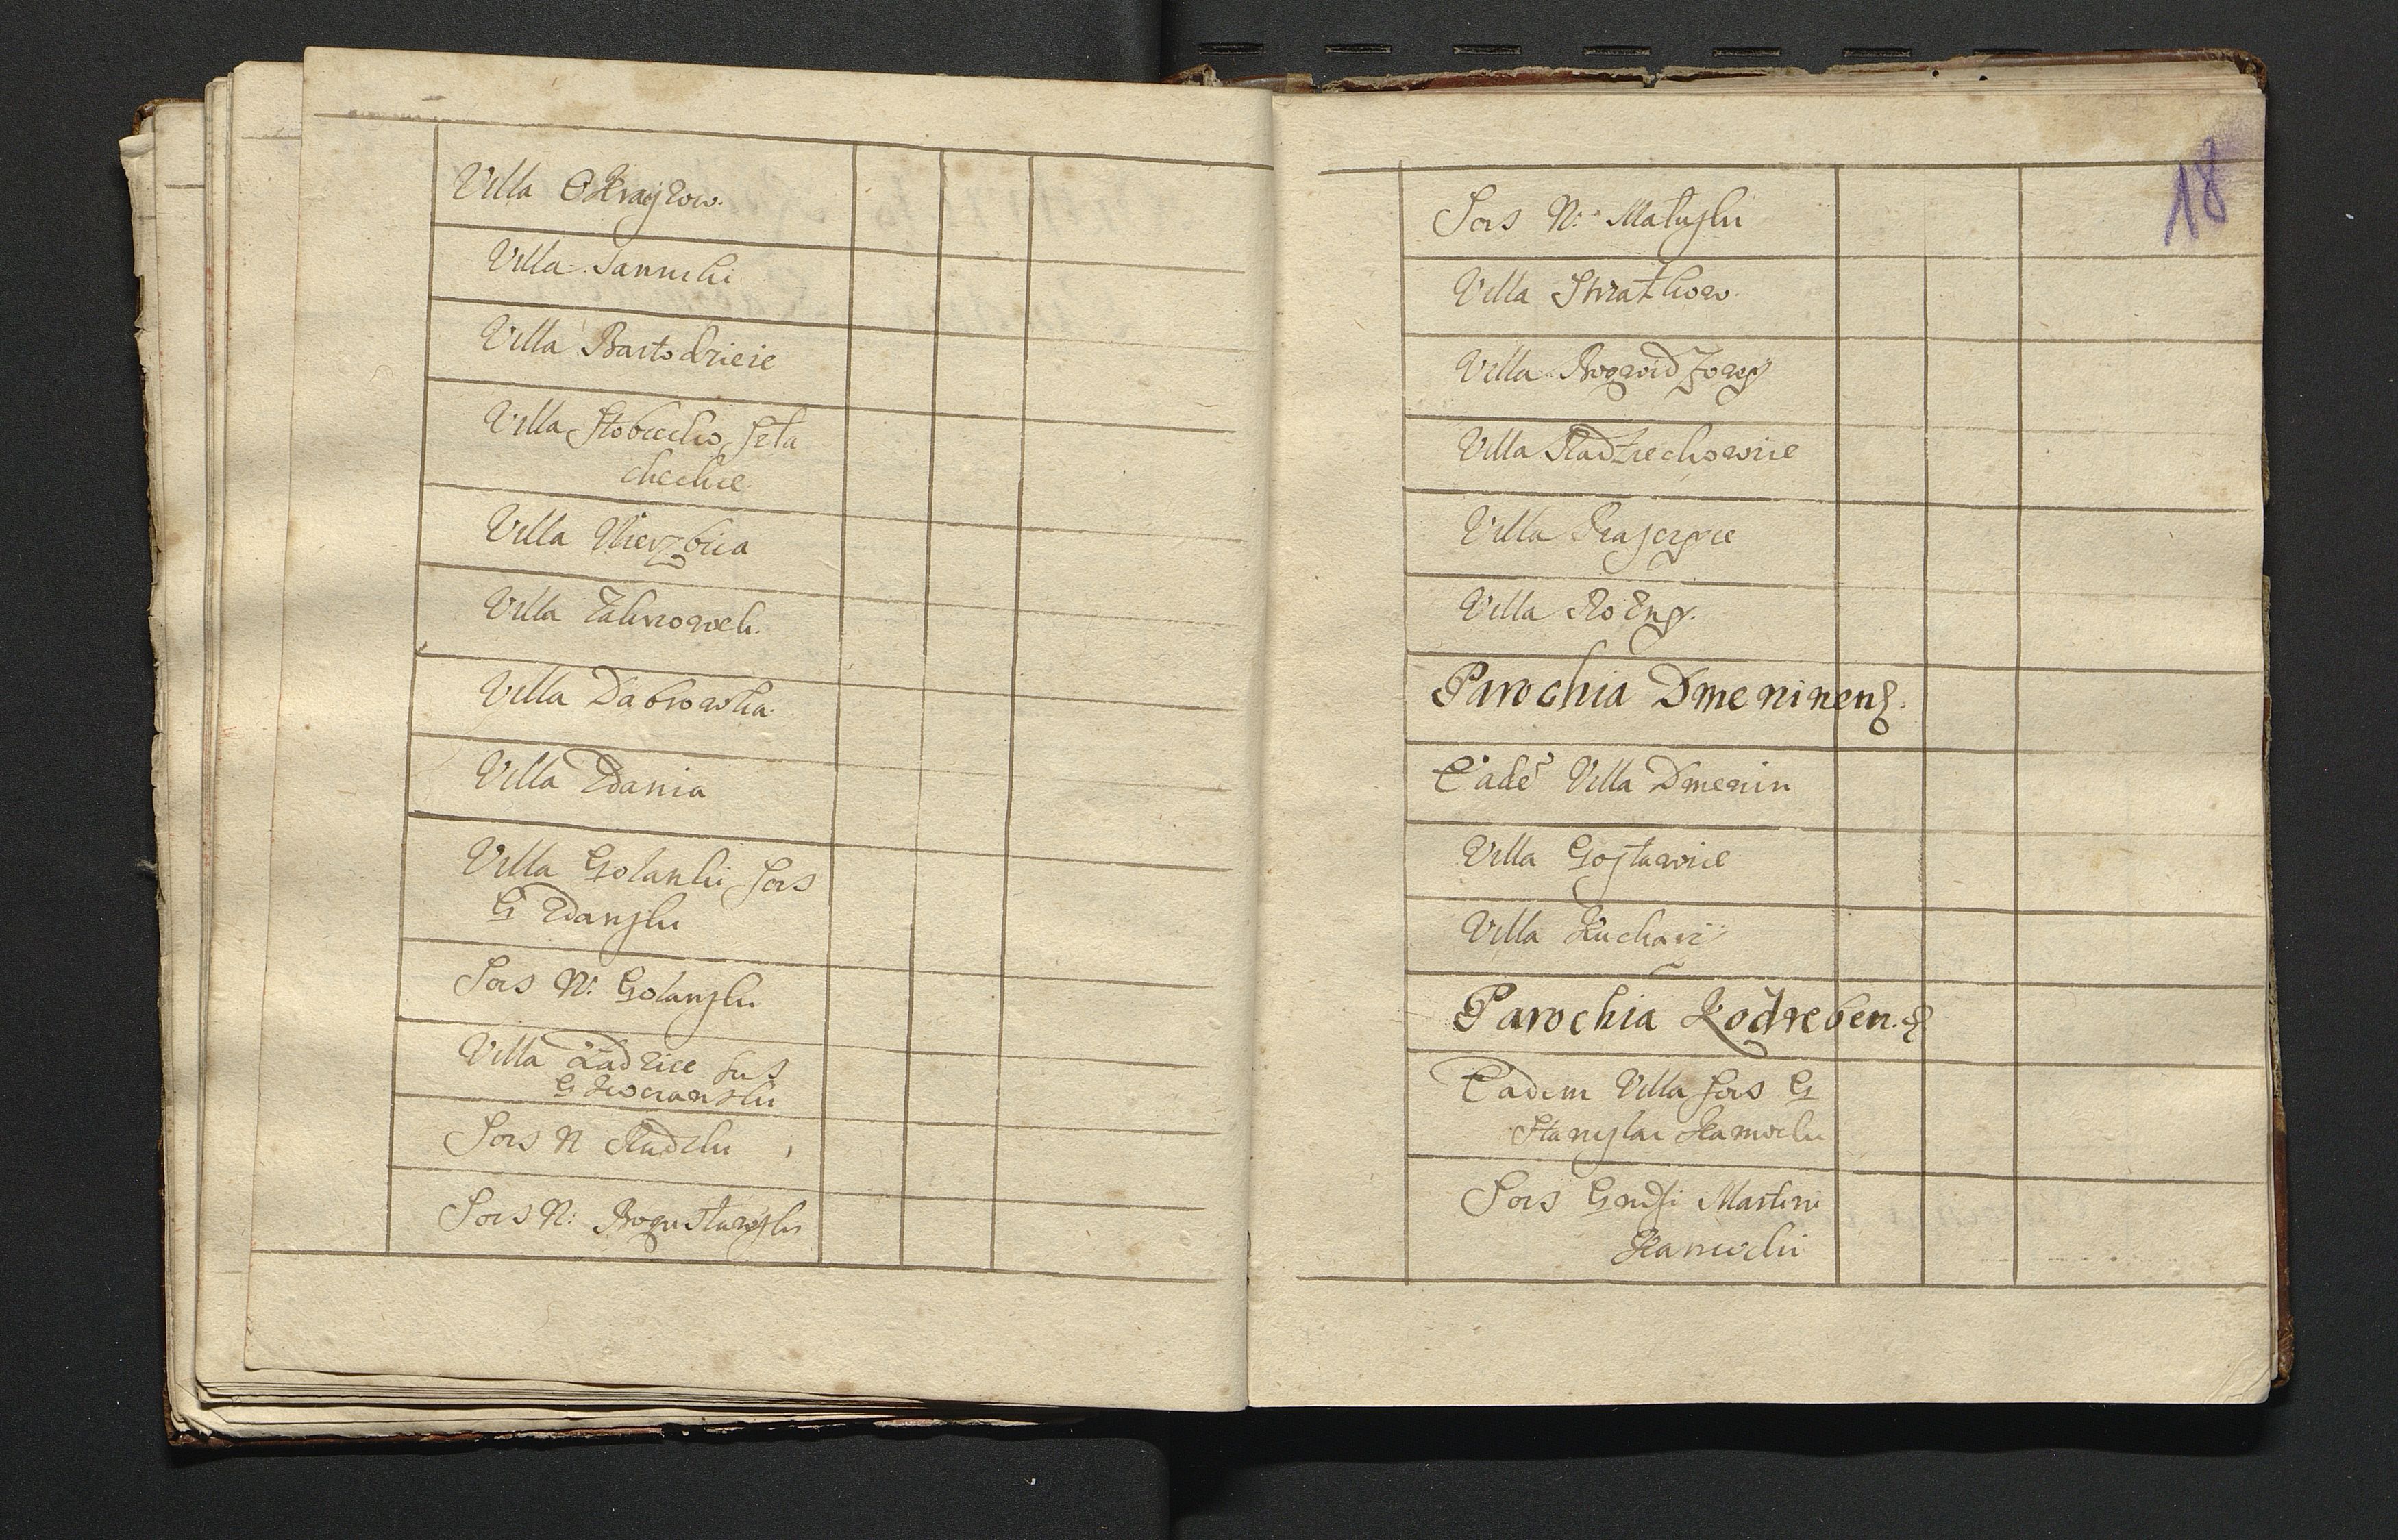 Villa Okrayzow.
Villa Jannuki
Villa Bartodzieie
Villa Stobiecko szla
checkie
Villa Wierzbica
Villa Zakrzowek.
Villa Dabrowka
Villa Zdania
Villa Golanki sors
G Zdansku
Sors N: Golansku
Villa Ładzice sors
Sors N Rudzku
Sors N: Bogusławsku
18
Sors N: Małusku
Villa Strzałkow.
Villa Bogwidzowy
Villa Radziechowice
Villa
Villa Rozny.
Parochia Dmeninens.
Eadē Villa Dmenin
Villa Gosławice
Villa Kucharz
Parochia Kodrebens
Eadem Villa sors G
Stanislai Kamocki
Sors Gndsi Martini
Kamocki